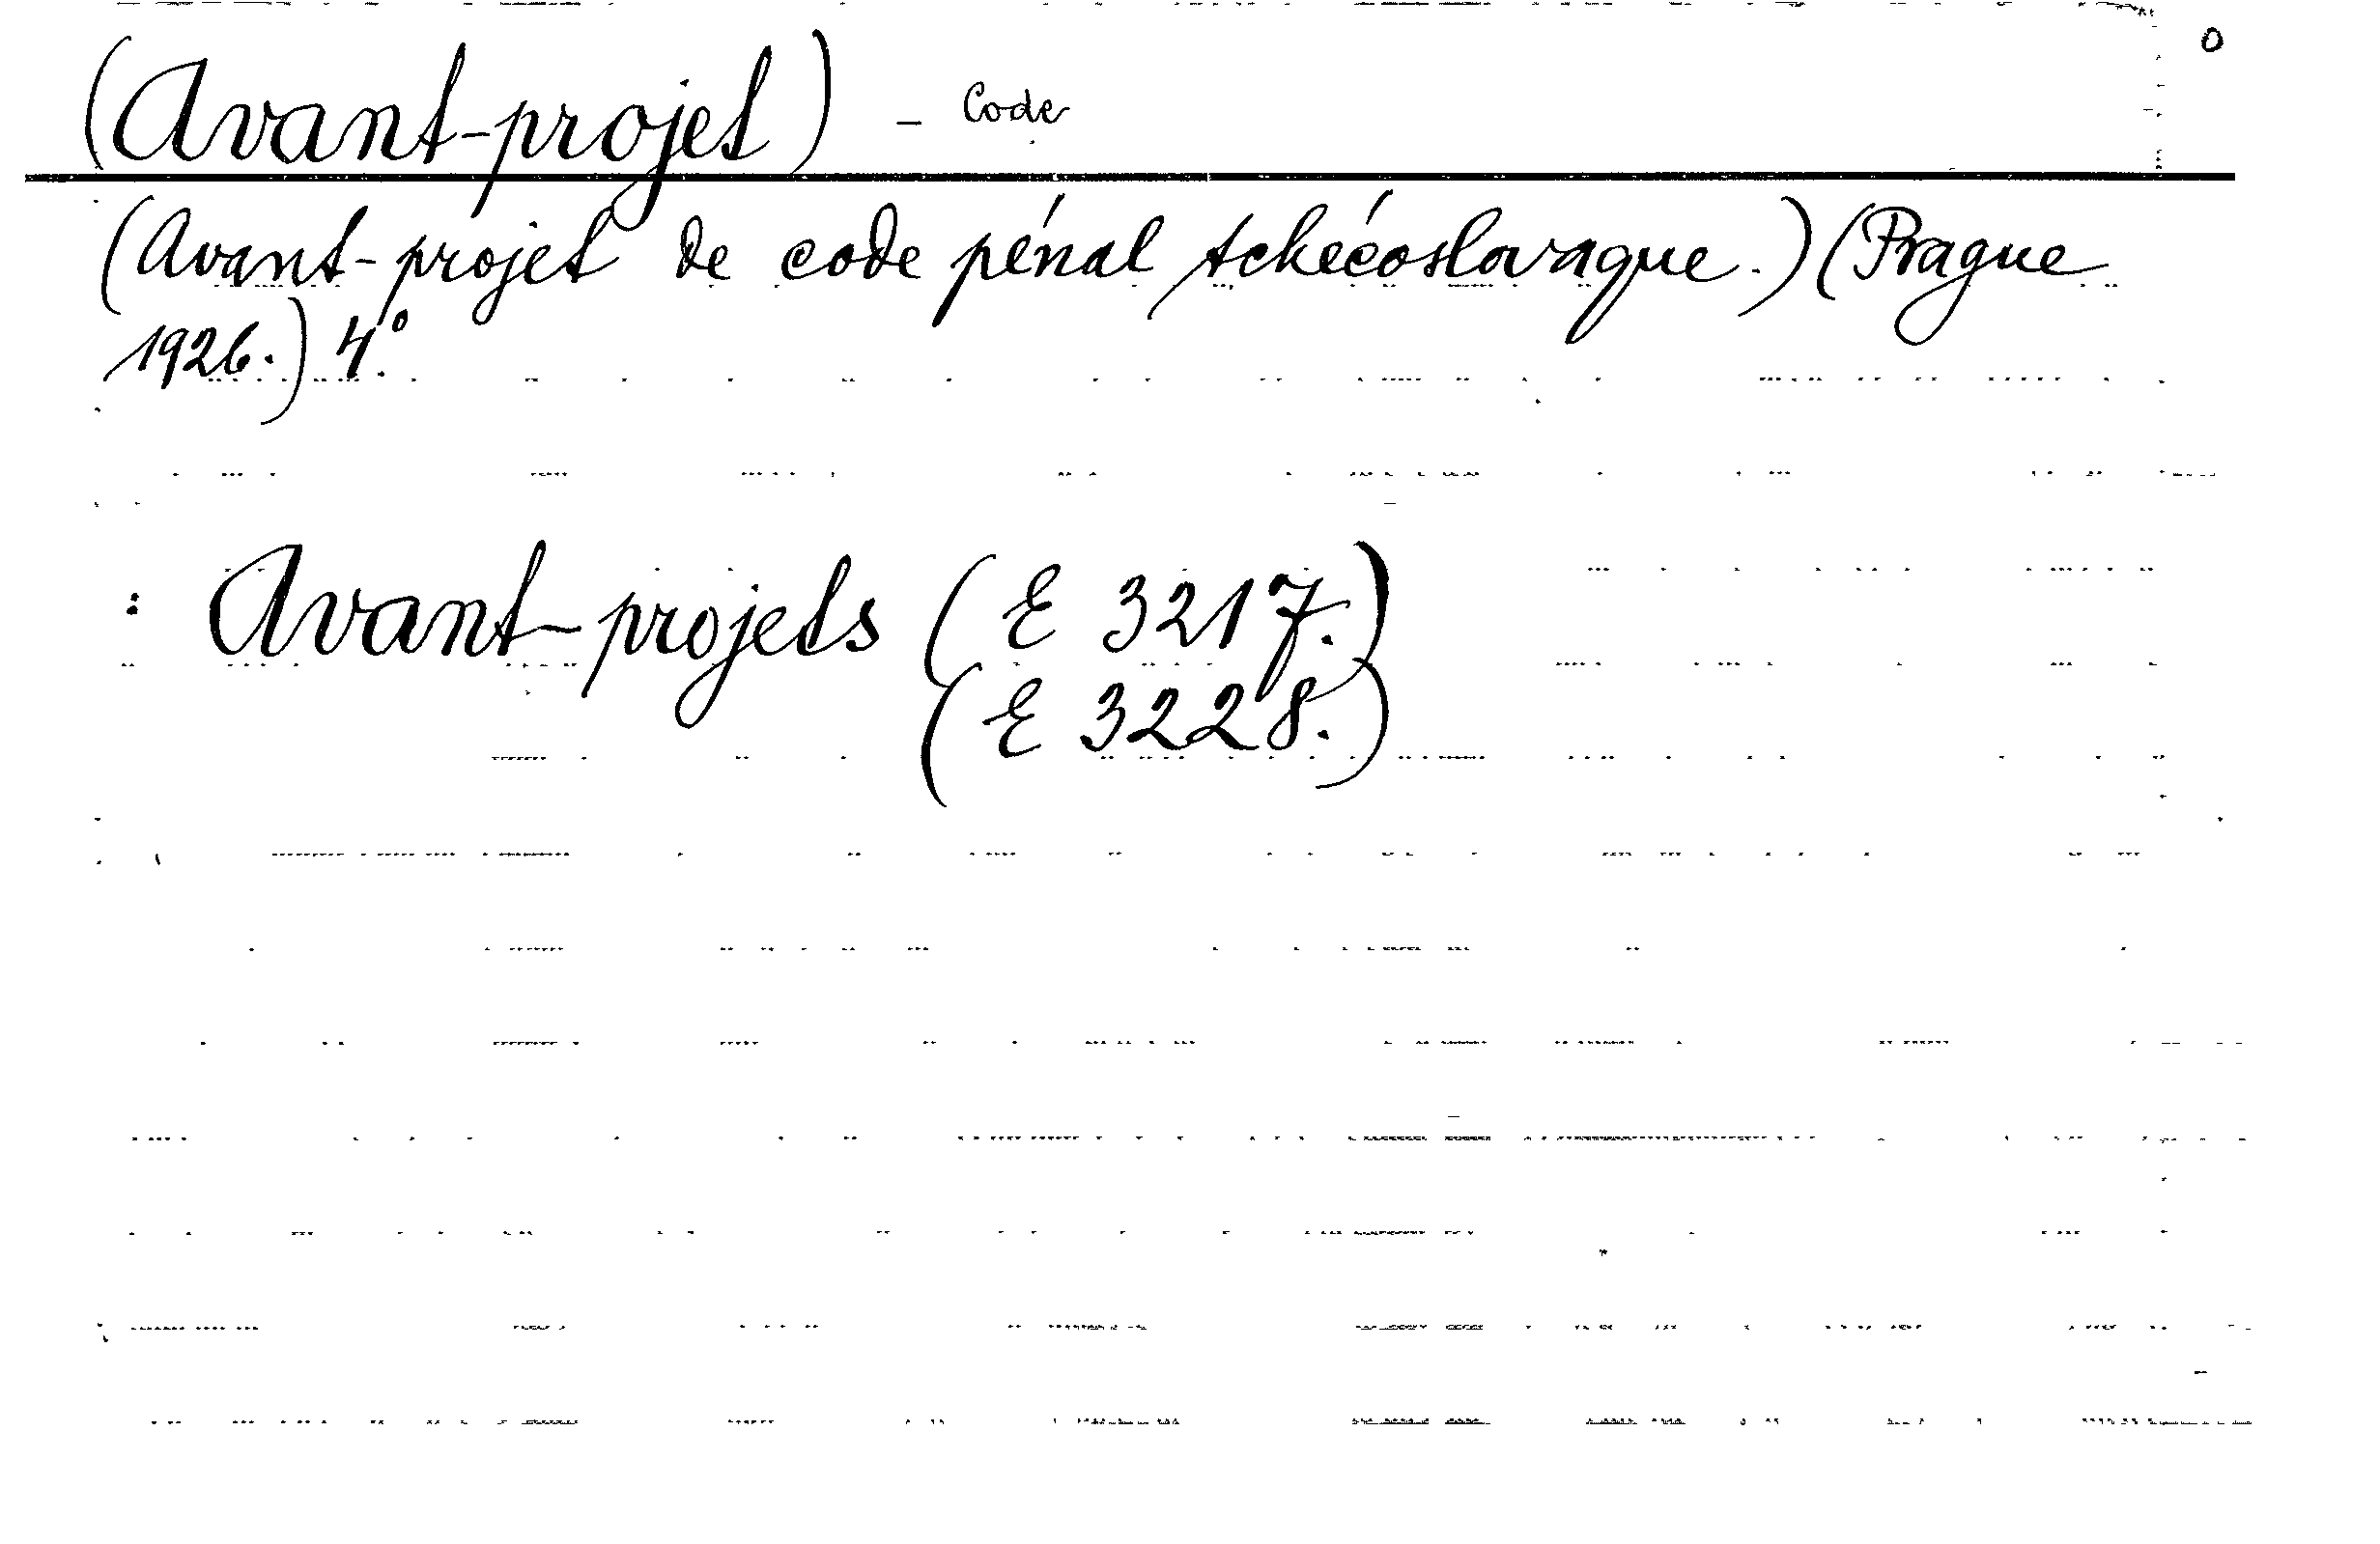 (Avant-projet) - Code
o
(Avant-projet de code pénal tchécoslovaque.) (Prague
1926.) 4°.
: Avant-projets (E 3217.)
(E 3228.)